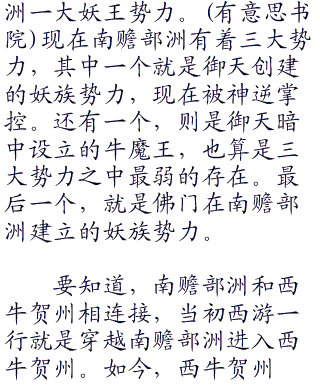 洲一大妖王势力。(有意思书
院)现在南赡部洲有着三大势
力，其中一个就是御天创建
的妖族势力，现在被神逆掌
控。还有一个，则是御天暗
中设立的牛魔王，也算是三
大势力之中最弱的存在。最
后一个，就是佛门在南赡部
洲建立的妖族势力。
要知道，南赡部洲和西
牛贺州相连接，当初西游一
行就是穿越南赡部洲进入西
牛贺州。如今，西牛贺州